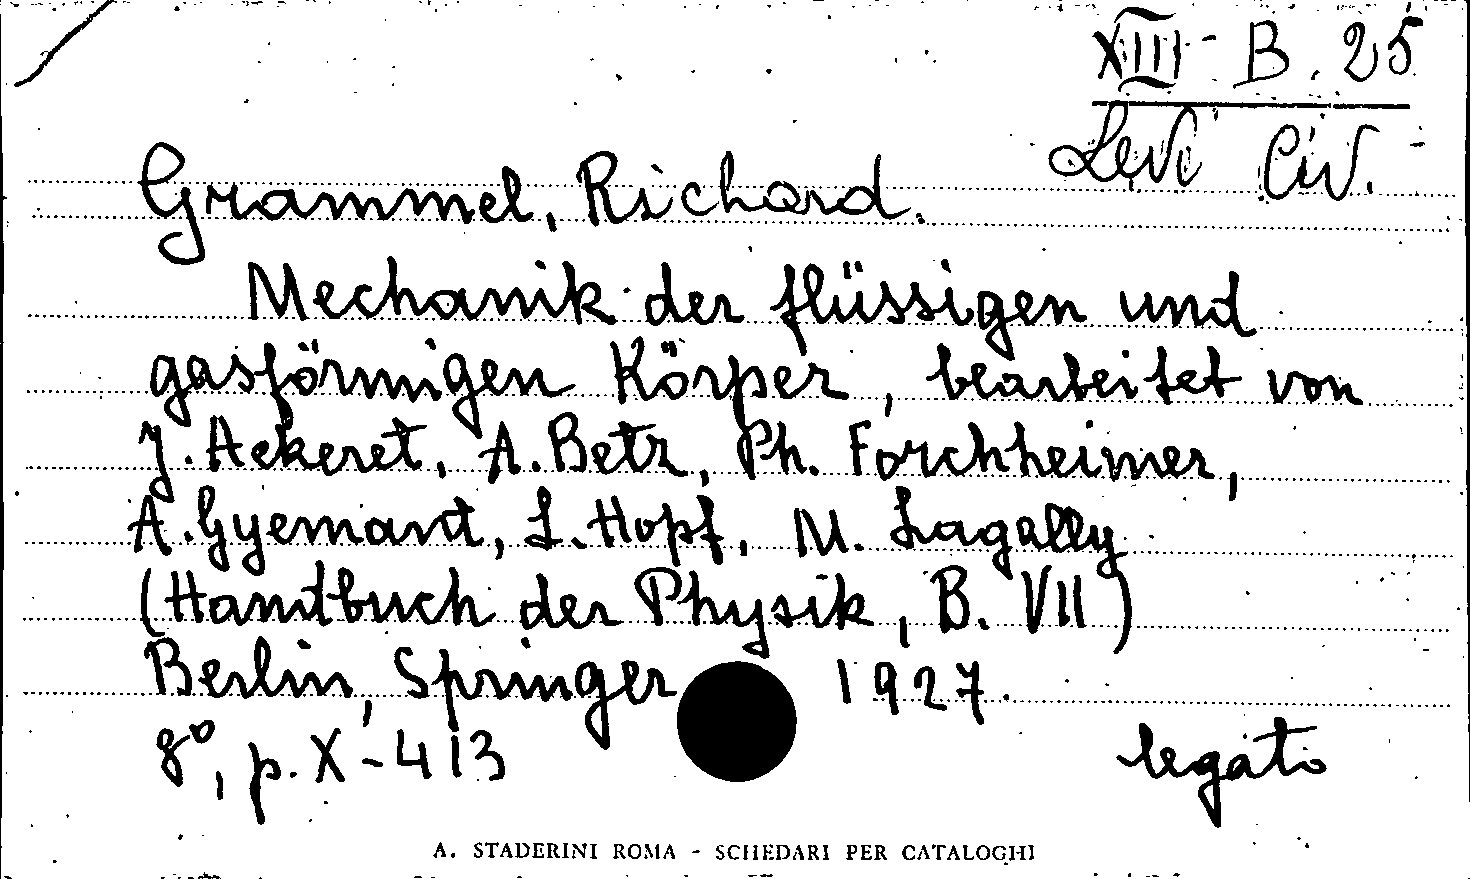 XIII - B. 25
Levi Civ.
Grammel, Richard.
Mechanik der flüssigen und
gasförmigen Körper, bearbeitet von
J. Ackeret, A. Betz, Ph. Forchheimer,
A. Gyemant, L. Hopf, M. Lagally
(Handbuch der Physik, B. VII)
Berlin, Springer 1927.
8°, p. X-413
legato
A. STADERINI ROMA - SCHEDARI PER CATALOGHI